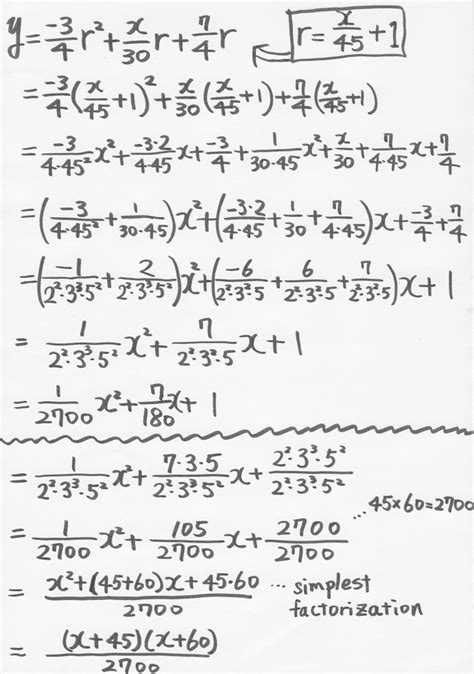 y = -3/4 r² + x/30 r + 7/4 r    r = x/45 + 1
= -3/4 (x/45 + 1)² + x/30 (x/45 + 1) + 7/4 (x/45 + 1)
= -3/(4·45²) x² + (-3·2)/(4·45) x + -3/4 + 1/(30·45) x² + x/30 + 7/(4·45) x + 7/4
= (-3/(4·45²) + 1/(30·45)) x² + ((-3·2)/(4·45) + 1/30 + 7/(4·45)) x + -3/4 + 7/4
= (-1/(2²·3³·5²) + 2/(2²·3³·5²)) x² + (-6/(2²·3²·5) + 6/(2²·3²·5) + 7/(2²·3²·5)) x + 1
= 1/(2²·3³·5²) x² + 7/(2²·3²·5) x + 1
= 1/2700 x² + 7/180 x + 1
= 1/(2²·3³·5²) x² + (7·3·5)/(2²·3³·5²) x + (2²·3³·5²)/(2²·3³·5²)
...45×60=2700
= 1/2700 x² + 105/2700 x + 2700/2700
= (x² + (45+60)x + 45·60)/2700 ... simplest factorization
= (x+45)(x+60)/2700